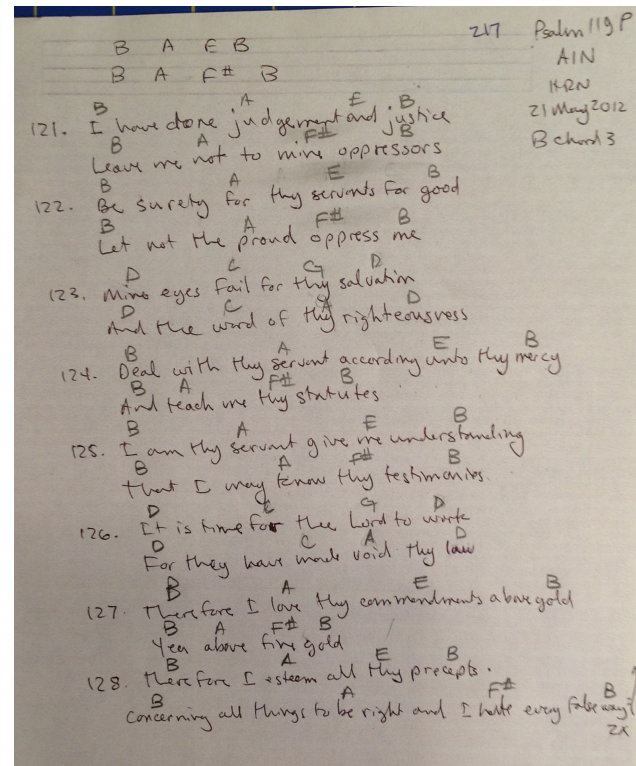 217 Psalm 119 P
B A E B
AIN
B A F# B
KRN
21 May 2012
B chord 3
B A E B
121. I have done judgement and justice
B A F# B
Leave me not to mine oppressors
B A E B
122. Be surety for thy servants for good
B A F# B
Let not the proud oppress me
D C G D
123. Mine eyes fail for thy salvation
D C A D
And the word of thy righteousness
B A E B
124. Deal with thy servant according unto thy mercy
B A F# B
And teach me thy statutes
B A E B
125. I am thy servant give me understanding
B A F# B
That I may know thy testimonies.
D C G D
126. It is time for thee Lord to work
D C A D
For they have made void thy law
B A E B
127. Therefore I love thy commendments above gold
B A F# B
Yea above fine gold
B A E B
128. Therefore I esteem all thy precepts.
B A F# B
Concerning all things to be right and I hate every false way
2x